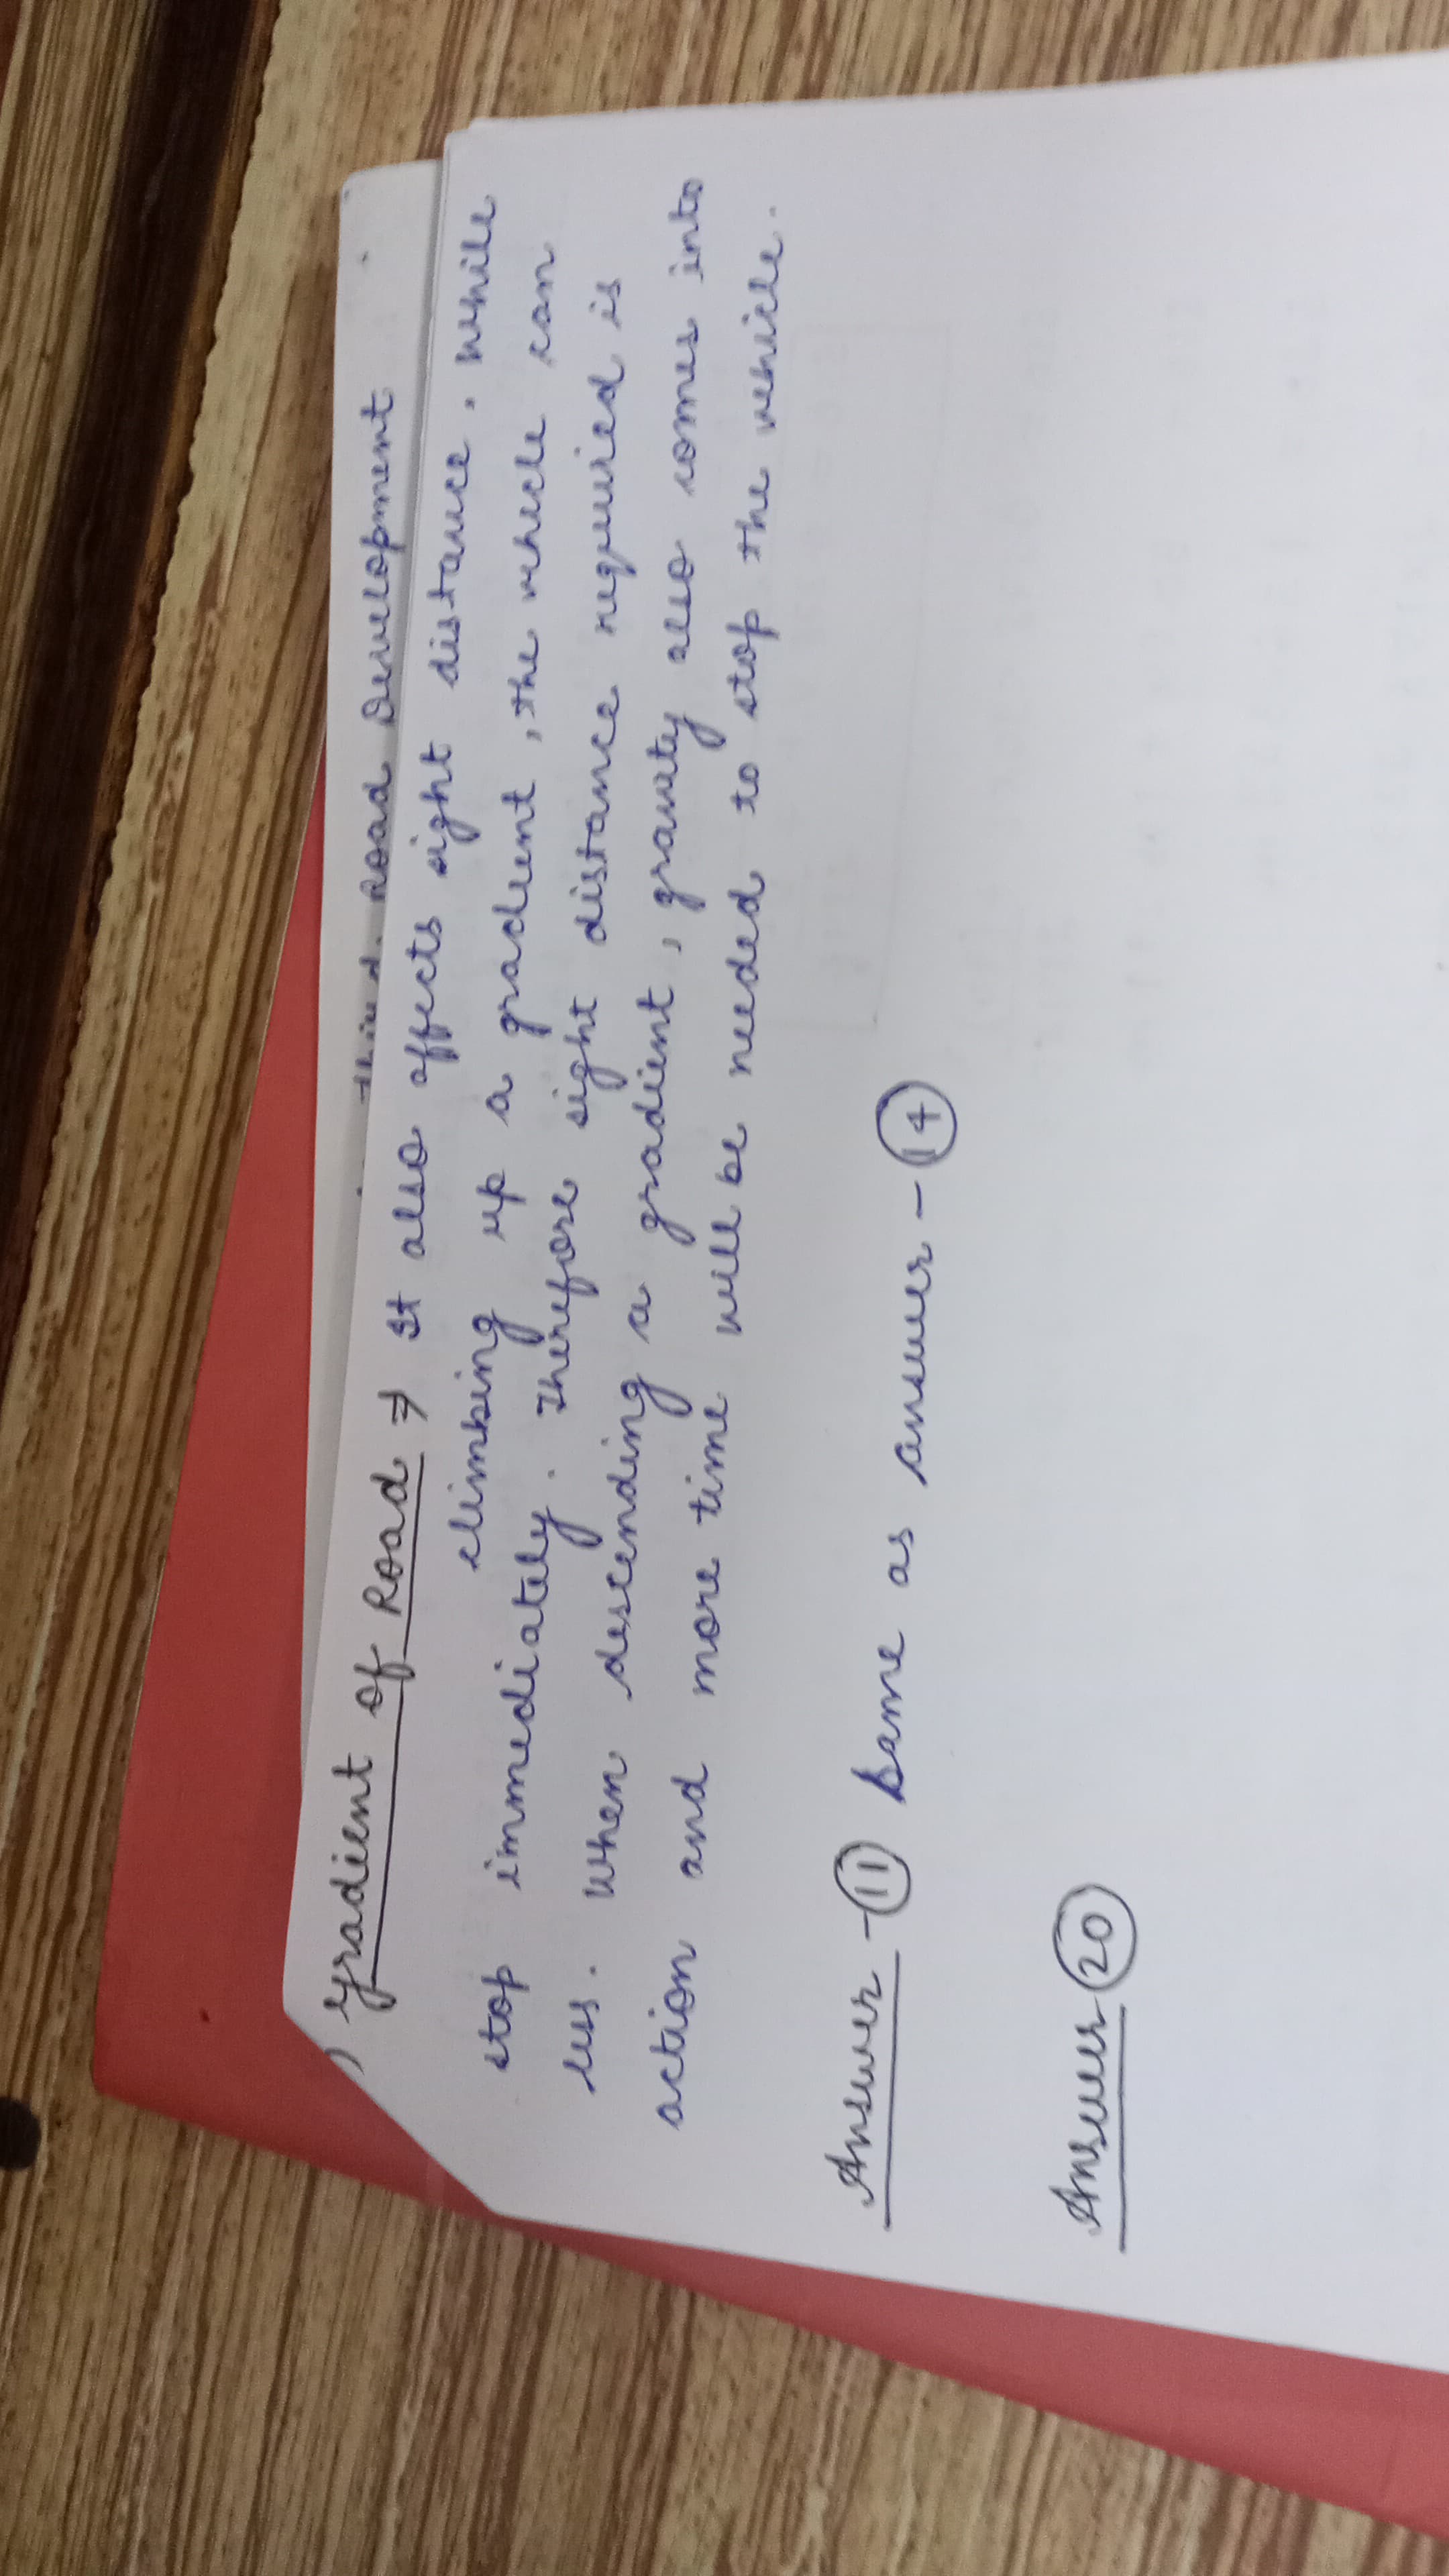 road Development
) Gradient of Road ⇒ It also affects sight distance. While
climbing up a gradient, the vehicle can
stop immediately. Therefore sight distance required is
less. When descending a gradient, gravity also comes into
action and more time will be needed to stop the vehicle.
Answer - 11 Same as answer - 14
Answer 20